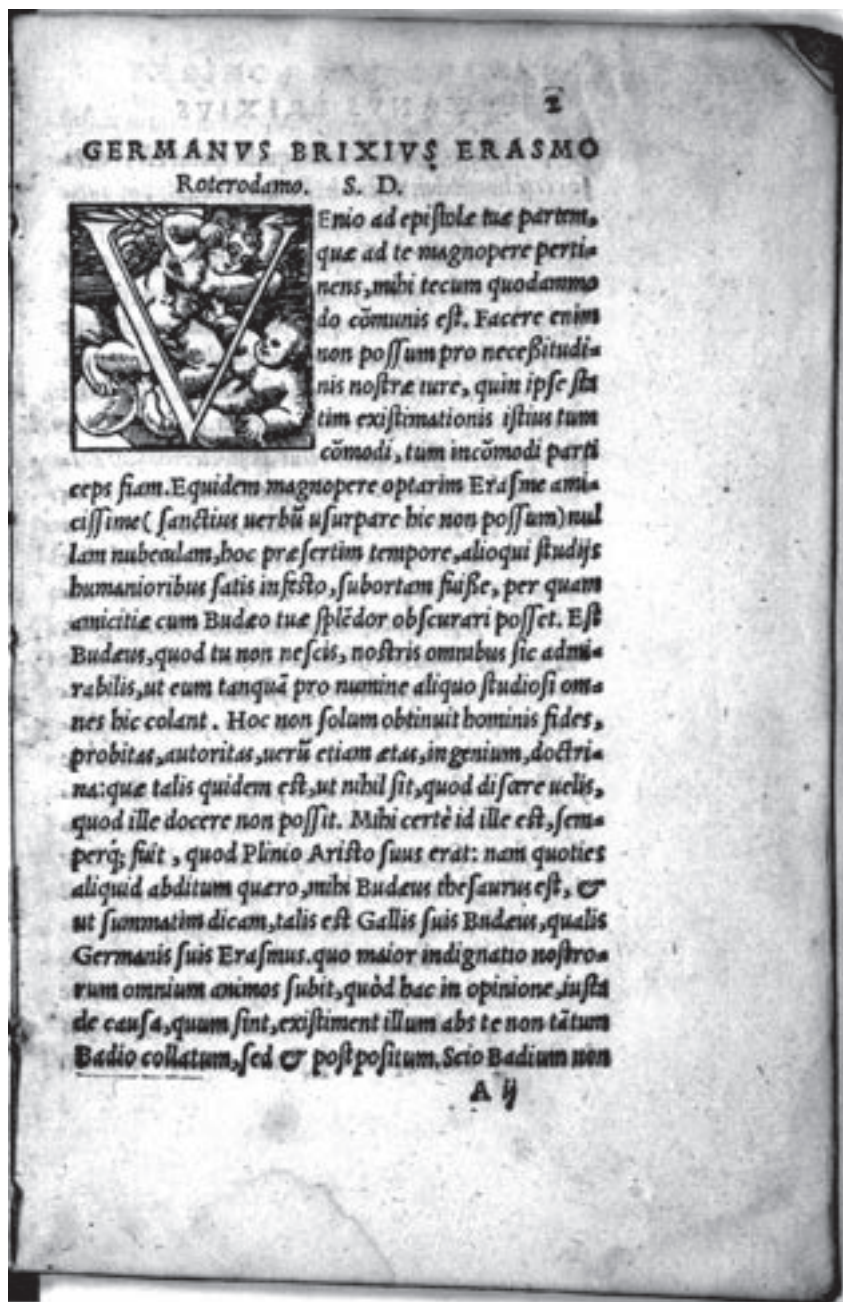 2
GERMANVS BRIXIVS ERASMO
Roterodamo. S. D.
VEnio ad epiſtolæ tuæ partem,
quæ ad te magnopere perti-
nens, mihi tecum quodammo
do cõmunis eſt. Facere enim
non poſſum pro neceßitudi-
nis noſtræ iure, quin ipſe ſta
tim exiſtimationis iſtius tum
cõmodi, tum incõmodi parti
ceps fiam. Equidem magnopere optarim Eraſme ami-
ciſſime (ſanctius uerbũ uſurpare hic non poſſum) nul
lam nubeculam, hoc præſertim tempore, alioqui ſtudijs
humanioribus ſatis infeſto, ſubortam fuiße, per quam
amicitiæ cum Budæo tuæ ſplẽdor obſcurari poſſet. Eſt
Budæus, quod tu non neſcis, noſtris omnibus ſic admi-
rabilis, ut eum tanquã pro numine aliquo ſtudioſi om-
nes hic colant. Hoc non ſolum obtinuit hominis fides,
probitas, autoritas, uerũ etiam ætas, ingenium, doctri-
na: quæ talis quidem eſt, ut nihil ſit, quod diſcere uelis,
quod ille docere non poſſit. Mihi certè id ille eſt, ſem-
perq́; fuit, quod Plinio Ariſto ſuus erat: nam quoties
aliquid abditum quæro, mihi Budæus theſaurus eſt, &
ut ſummatim dicam, talis eſt Gallis ſuis Budæus, qualis
Germanis ſuis Eraſmus. quo maior indignatio noſtro-
rum omnium animos ſubit, quòd hac in opinione, iuſta
de cauſa, quum ſint, exiſtiment illum abs te non tãtum
Badio collatum, ſed & poſtpoſitum. Scio Badium non
A ij